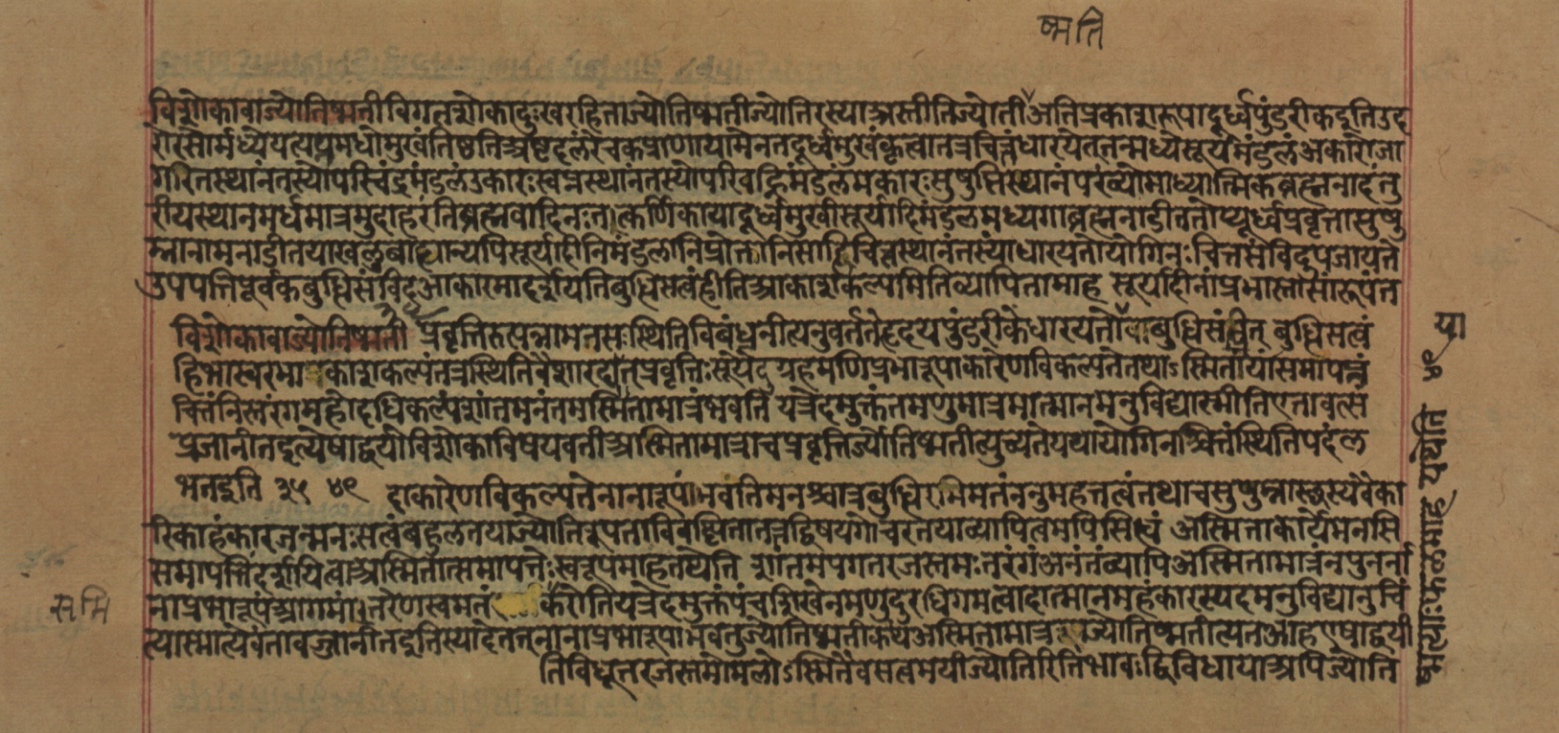 ष्मति
विशोकावाज्योतिष्मतीविगतशोकादुःखरहिताज्योतिष्मतीज्योतिरस्याअस्तीतिज्योती अतिप्रकाशरूपादूर्ध्वपुंडरीकइतिउद
रोरसोर्मध्येयत्पद्ममधोमुखंतिष्ठतिअष्टदलंरेचकप्राणायामेनतदूर्ध्वमुखंकृत्वातत्रचित्तंधारयेततन्मध्येसूर्यमंडलंअकारोजा
गरितस्थानंतस्योपरिचंद्रमंडलंउकारःस्वप्नस्थानंतस्योपरिवह्निमंडलंमकारःसुषुप्तिस्थानंपरंव्योमाध्यात्मिकंब्रह्मनादंतु
रीयस्थानमर्धमात्रमुदाहरंतिब्रह्मवादिनःतत्कर्णिकायादूर्ध्वमुखीसूर्यादिमंडलमध्यगाब्रह्मनाडीततोप्यूर्ध्वप्रवृत्तासुषु
म्नानामनाडीतयाखलुबाह्यान्यपिसूर्यादीनिमंडलानिप्रोक्तानिसाहिचित्तस्थानंतस्यांधारयतोयोगिनःचित्तसंविदुपजायते
उपपत्तिपूर्वकंबुद्धिसंविदआकारमादर्शयतिबुद्धिसत्वंहीतिआकाशकल्पमितिव्यापितामाह सूर्यादीनांप्रभास्तासांरूपंत
विशोकावाज्योतिष्मती प्रवृत्तिरुत्पन्नामनसःस्थितिनिबंधनीत्यनुवर्ततेहृदयपुंडरीकेधारयतोयाबुद्धिसंवित् बुद्धिसत्वं
हिभास्वरमाकाशकल्पंतत्रस्थितिवैशारद्यात्प्रवृत्तिःसूर्येंदुग्रहमणिप्रभारूपाकारेणविकल्पतेतथाऽस्मितायांसमापन्नं
चित्तंनिस्तरंगमहोदधिकल्पंशांतमनंतमस्मितामात्रंभवति यत्रेदमुक्तंतमणुमात्रमात्मानमनुविद्यास्मीतिएतावत्सं
प्रजानीतइत्येषाद्वयीविशोकाविषयवतीअस्मितामात्राचप्रवृत्तिर्ज्योतिष्मतीत्युच्यतेययायोगिनश्चित्तंस्थितिपदंल
भतइति ३५ ४९ दाकारेणविकल्पतेनानारूपाभवंतिमनश्चात्रबुद्धिरभिमतंननुमहत्तत्वंतथाचसुषुम्नास्थस्यवैका
रिकाहंकारजन्मनःसत्वबहुलतयाज्योतीरूपताविवक्षितातत्तद्विषयगोचरतयाव्यापित्वमपिसिद्धं अस्मिताकार्येमनसि
समापत्तिंदर्शयित्वाअस्मितांत्समापत्तेःस्वरूपमाहतथेति शांतमपगतरजस्तमःतरंगंअनंतंव्यापिअस्मितामात्रंनपुनर्ना
नाप्रभारूपंआगमांतरेणस्वमतं करोतियत्रेदमुक्तंपंचशिखेनमणुदुरधिगमत्वादात्मानमहंकारस्यदमनुविद्यानुचिं
त्यास्मात्येवंतावज्जानीतइतिस्यादेतत्नानाप्रभारूपाभवतुज्योतिष्मतीकथंअस्मितामात्र ज्योतिष्मतीत्यतआहएषाद्वयी
तिविधूतरजस्तमोमलोऽस्मितैवसत्वमयीज्योतिरितिभावःद्विविधायाअपिज्योति
ष्मत्याःफलमाह ययेति ४९
या
समि